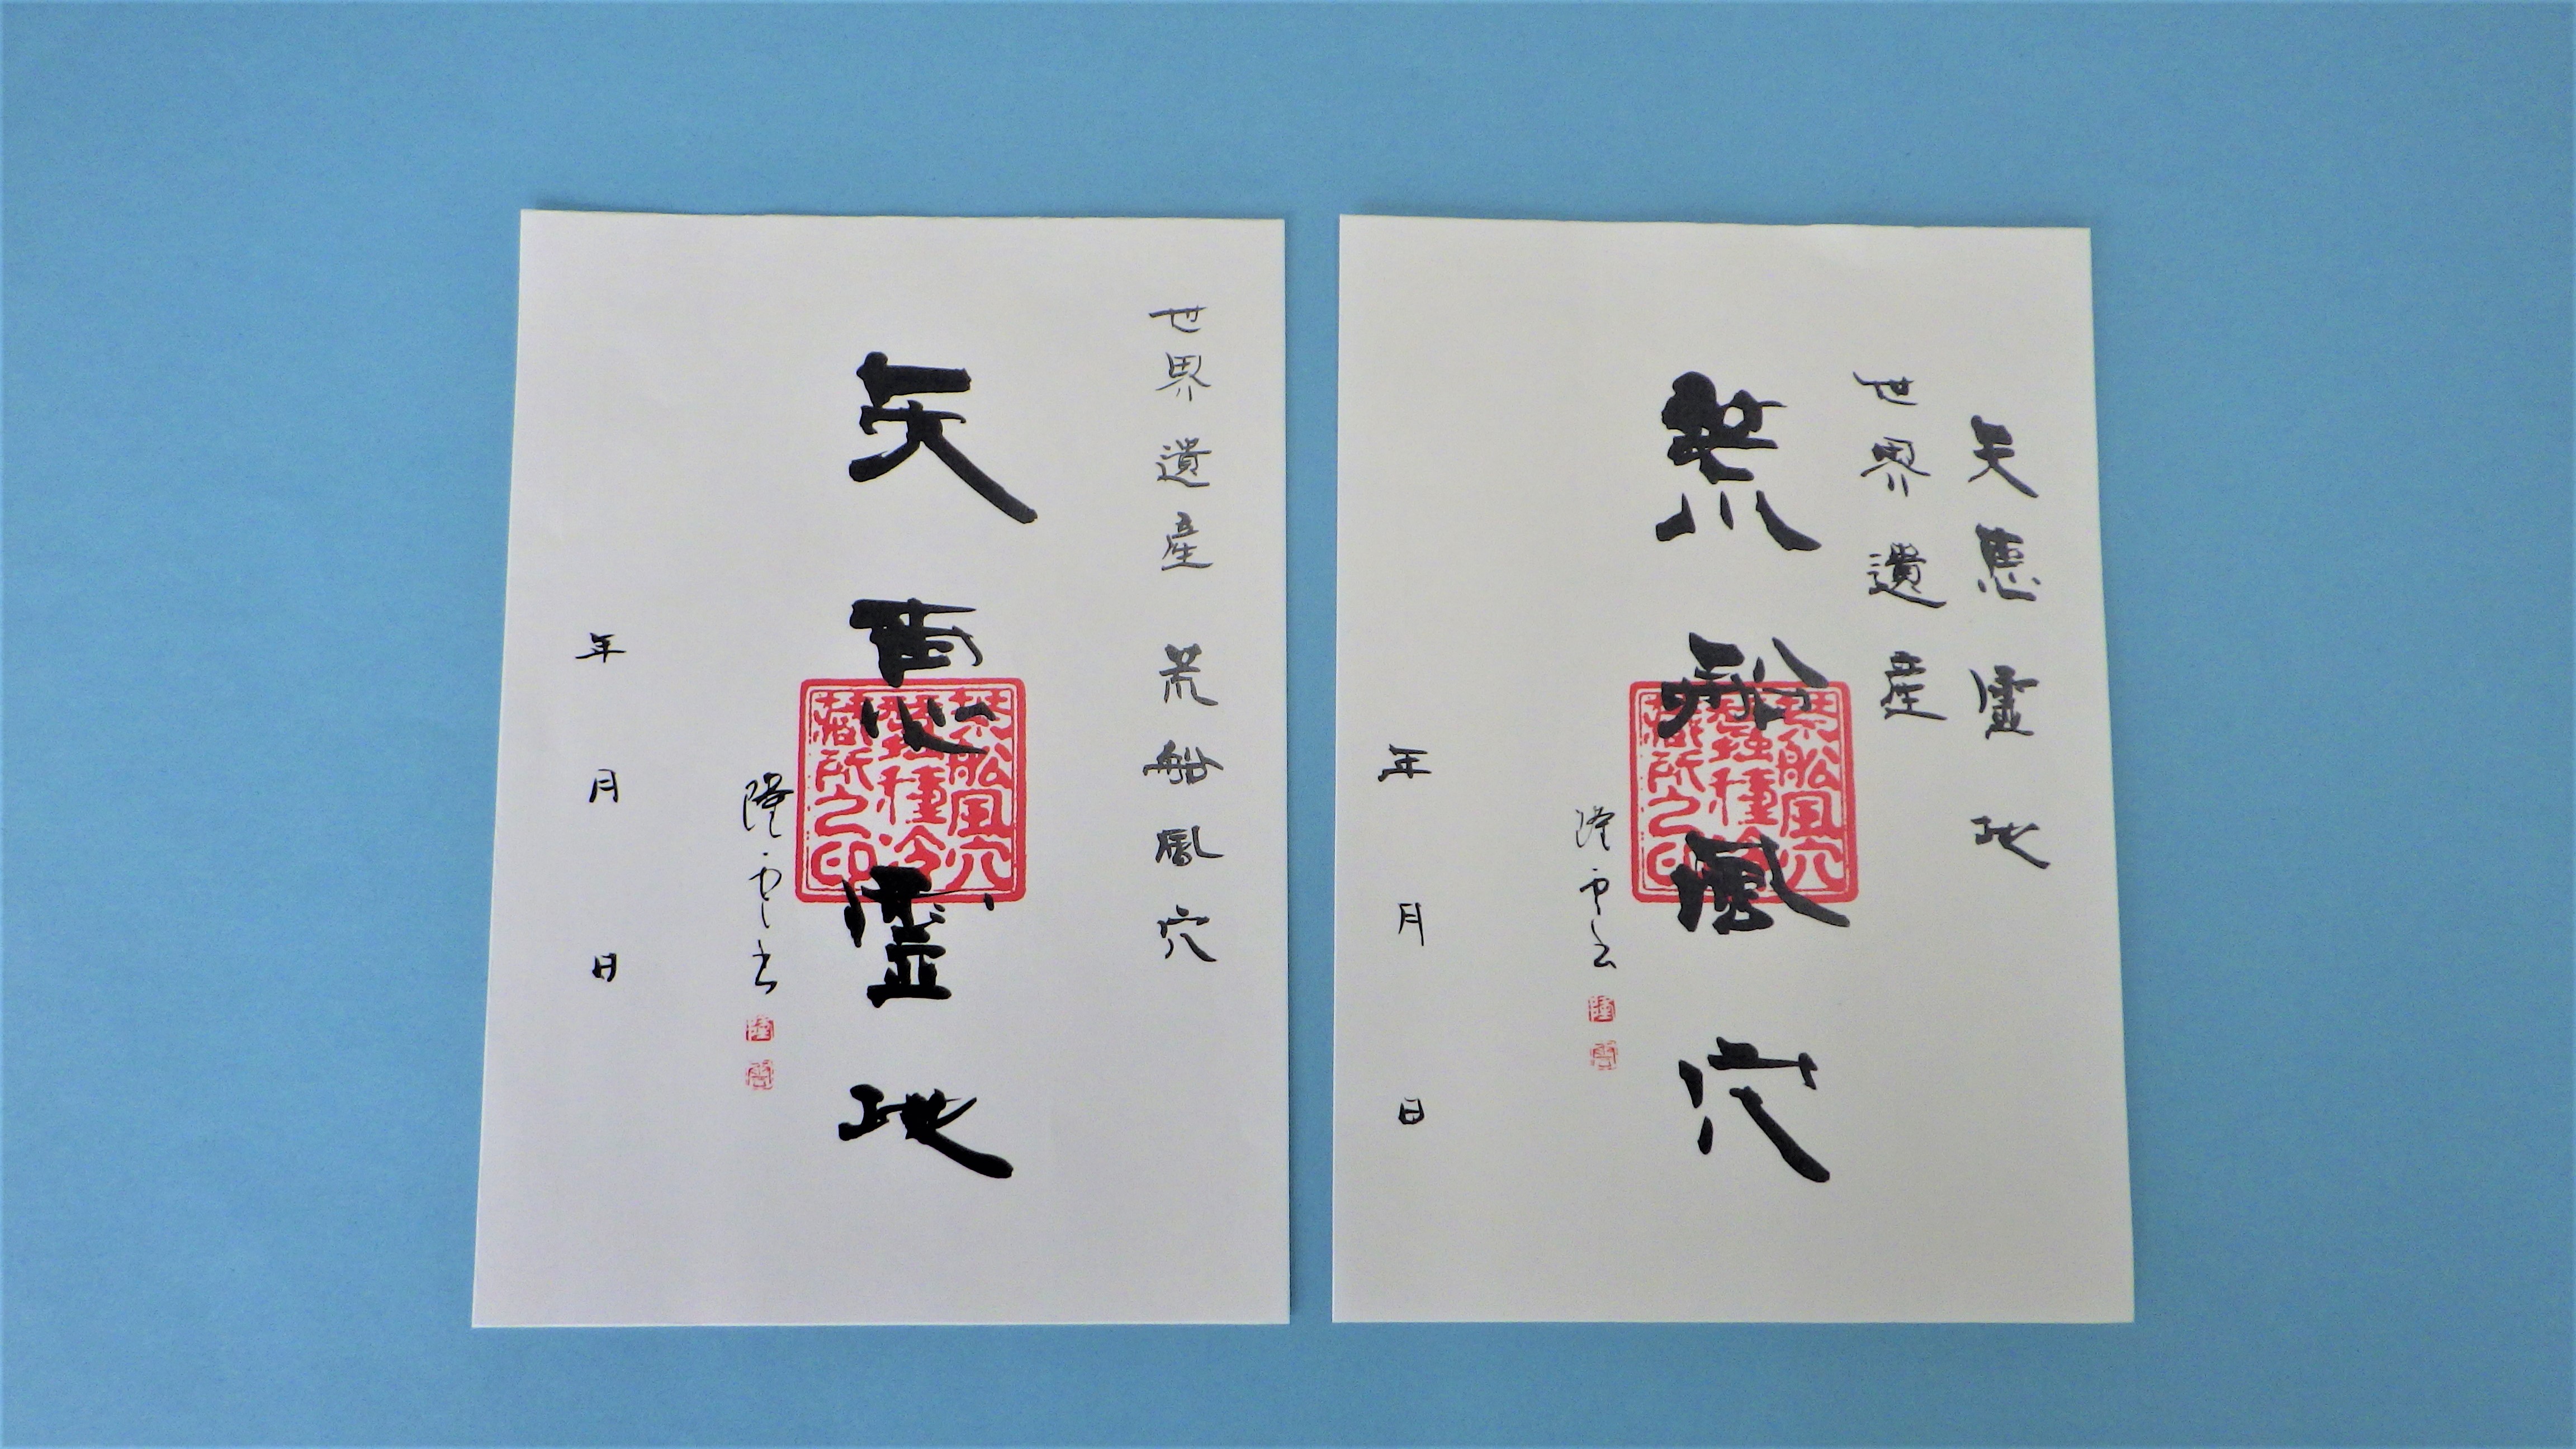 世界遺産 荒船風穴
天恵霊地
荒船風穴
蚕種冷
蔵所之印
隆雲書
隆
雲
年 月 日
天恵霊地
世界遺産
荒船風穴
荒船風穴
蚕種冷
蔵所之印
隆雲書
隆
雲
年 月 日